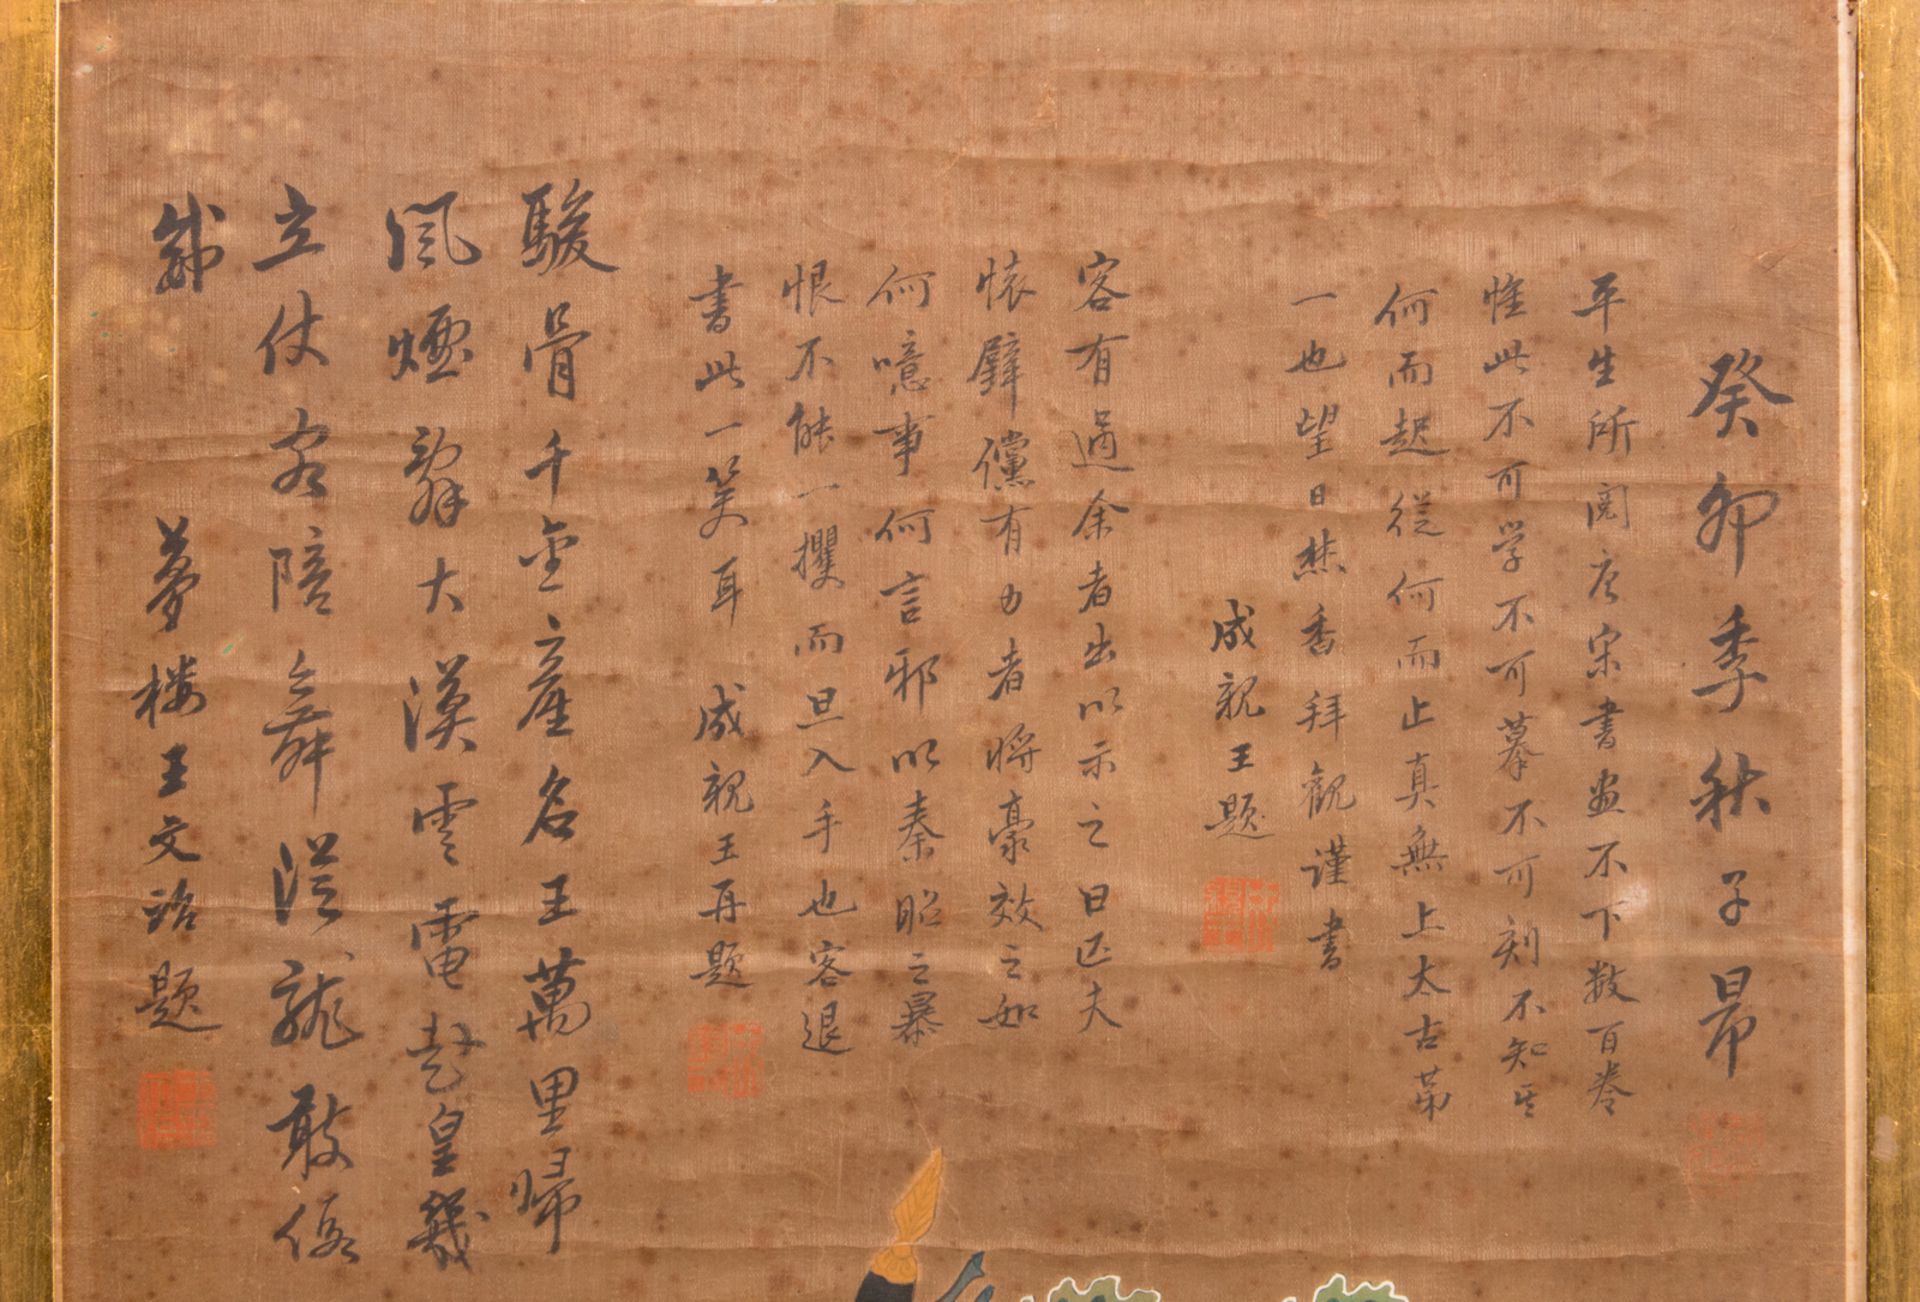 癸卯季秋子昂
平生所閱唐宋書畫不下数百卷
惟此不可学不可摹不可刻不知其
何而起從何而止真無上太古第
一也望日焚香拜觀謹書
成親王題
客有過余者出以示之曰匹夫
懐璧儻有力者將豪效之如
何噫事何言邪以秦昭之暴
恨不能一攫而旦入手也客退
書此一笑耳 成親王再題
駿骨千金產名王萬里歸
風煙辭大漠雲電赴皇畿
立仗容陪舞從龍敢後
夢楼王文治題